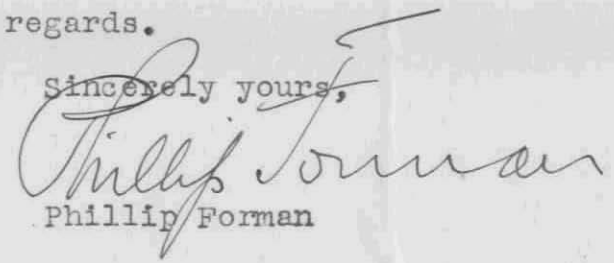 regards.
Sincerely yours,
Phillip Forman
Phillip Forman